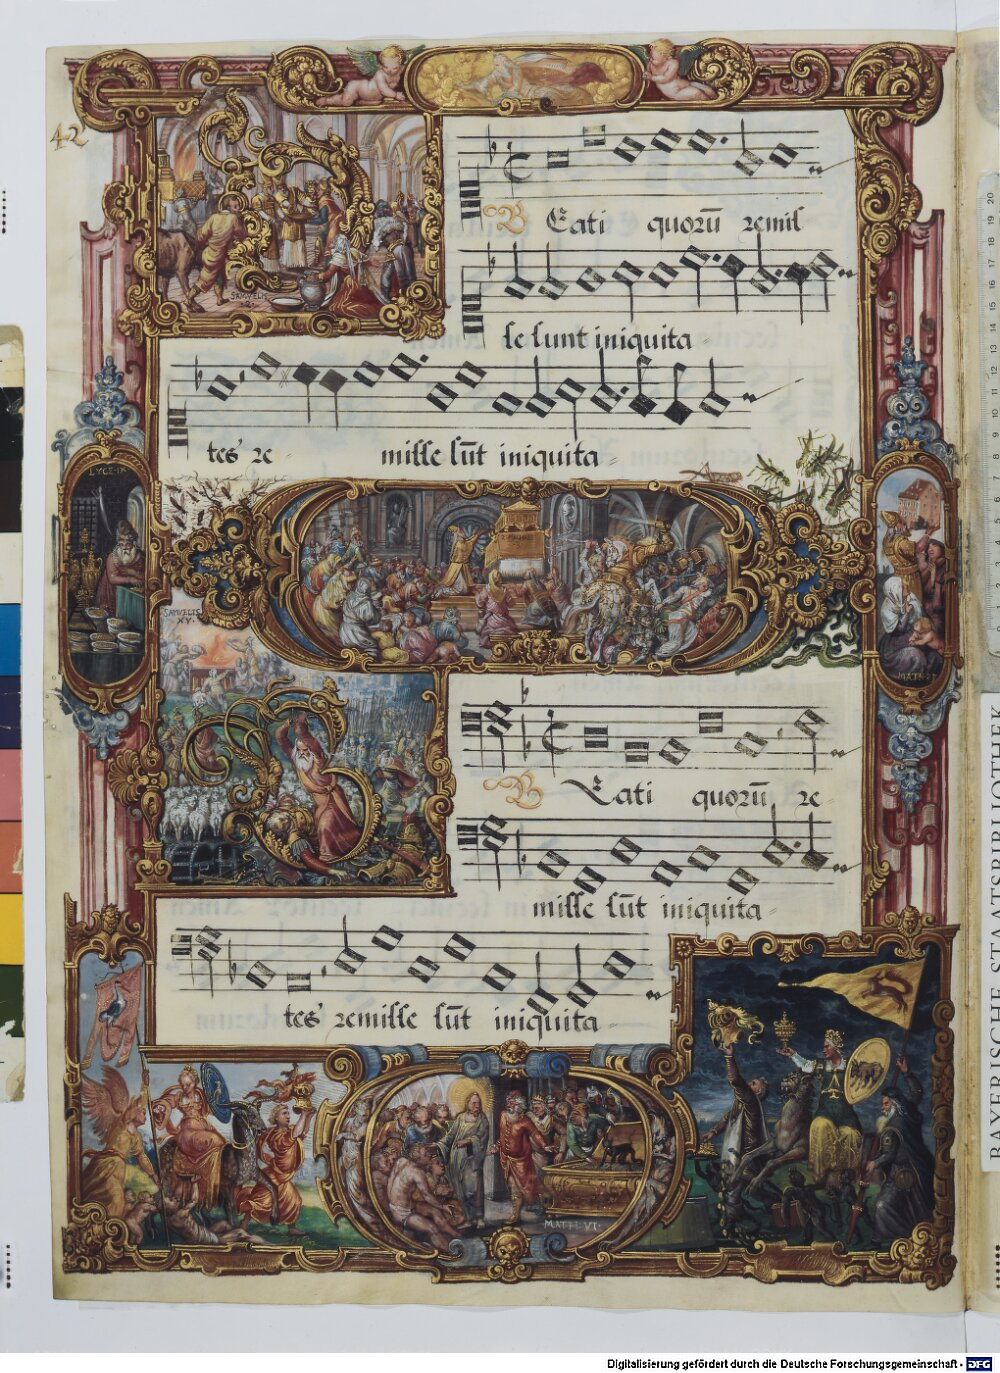 42
Beati quorū remis
se sunt iniquita
tes re- misse sūt iniquita-
LVCE IX
SAMVELIS
2
SAMVELIS
XV
MATH
Beati quorū re-
misse sūt iniquita-
tes remisse sūt iniquita-
MATH VI
BAYERISCHE STAATSBIBLIOTHEK
Digitalisierung gefördert durch die Deutsche Forschungsgemeinschaft - DFG